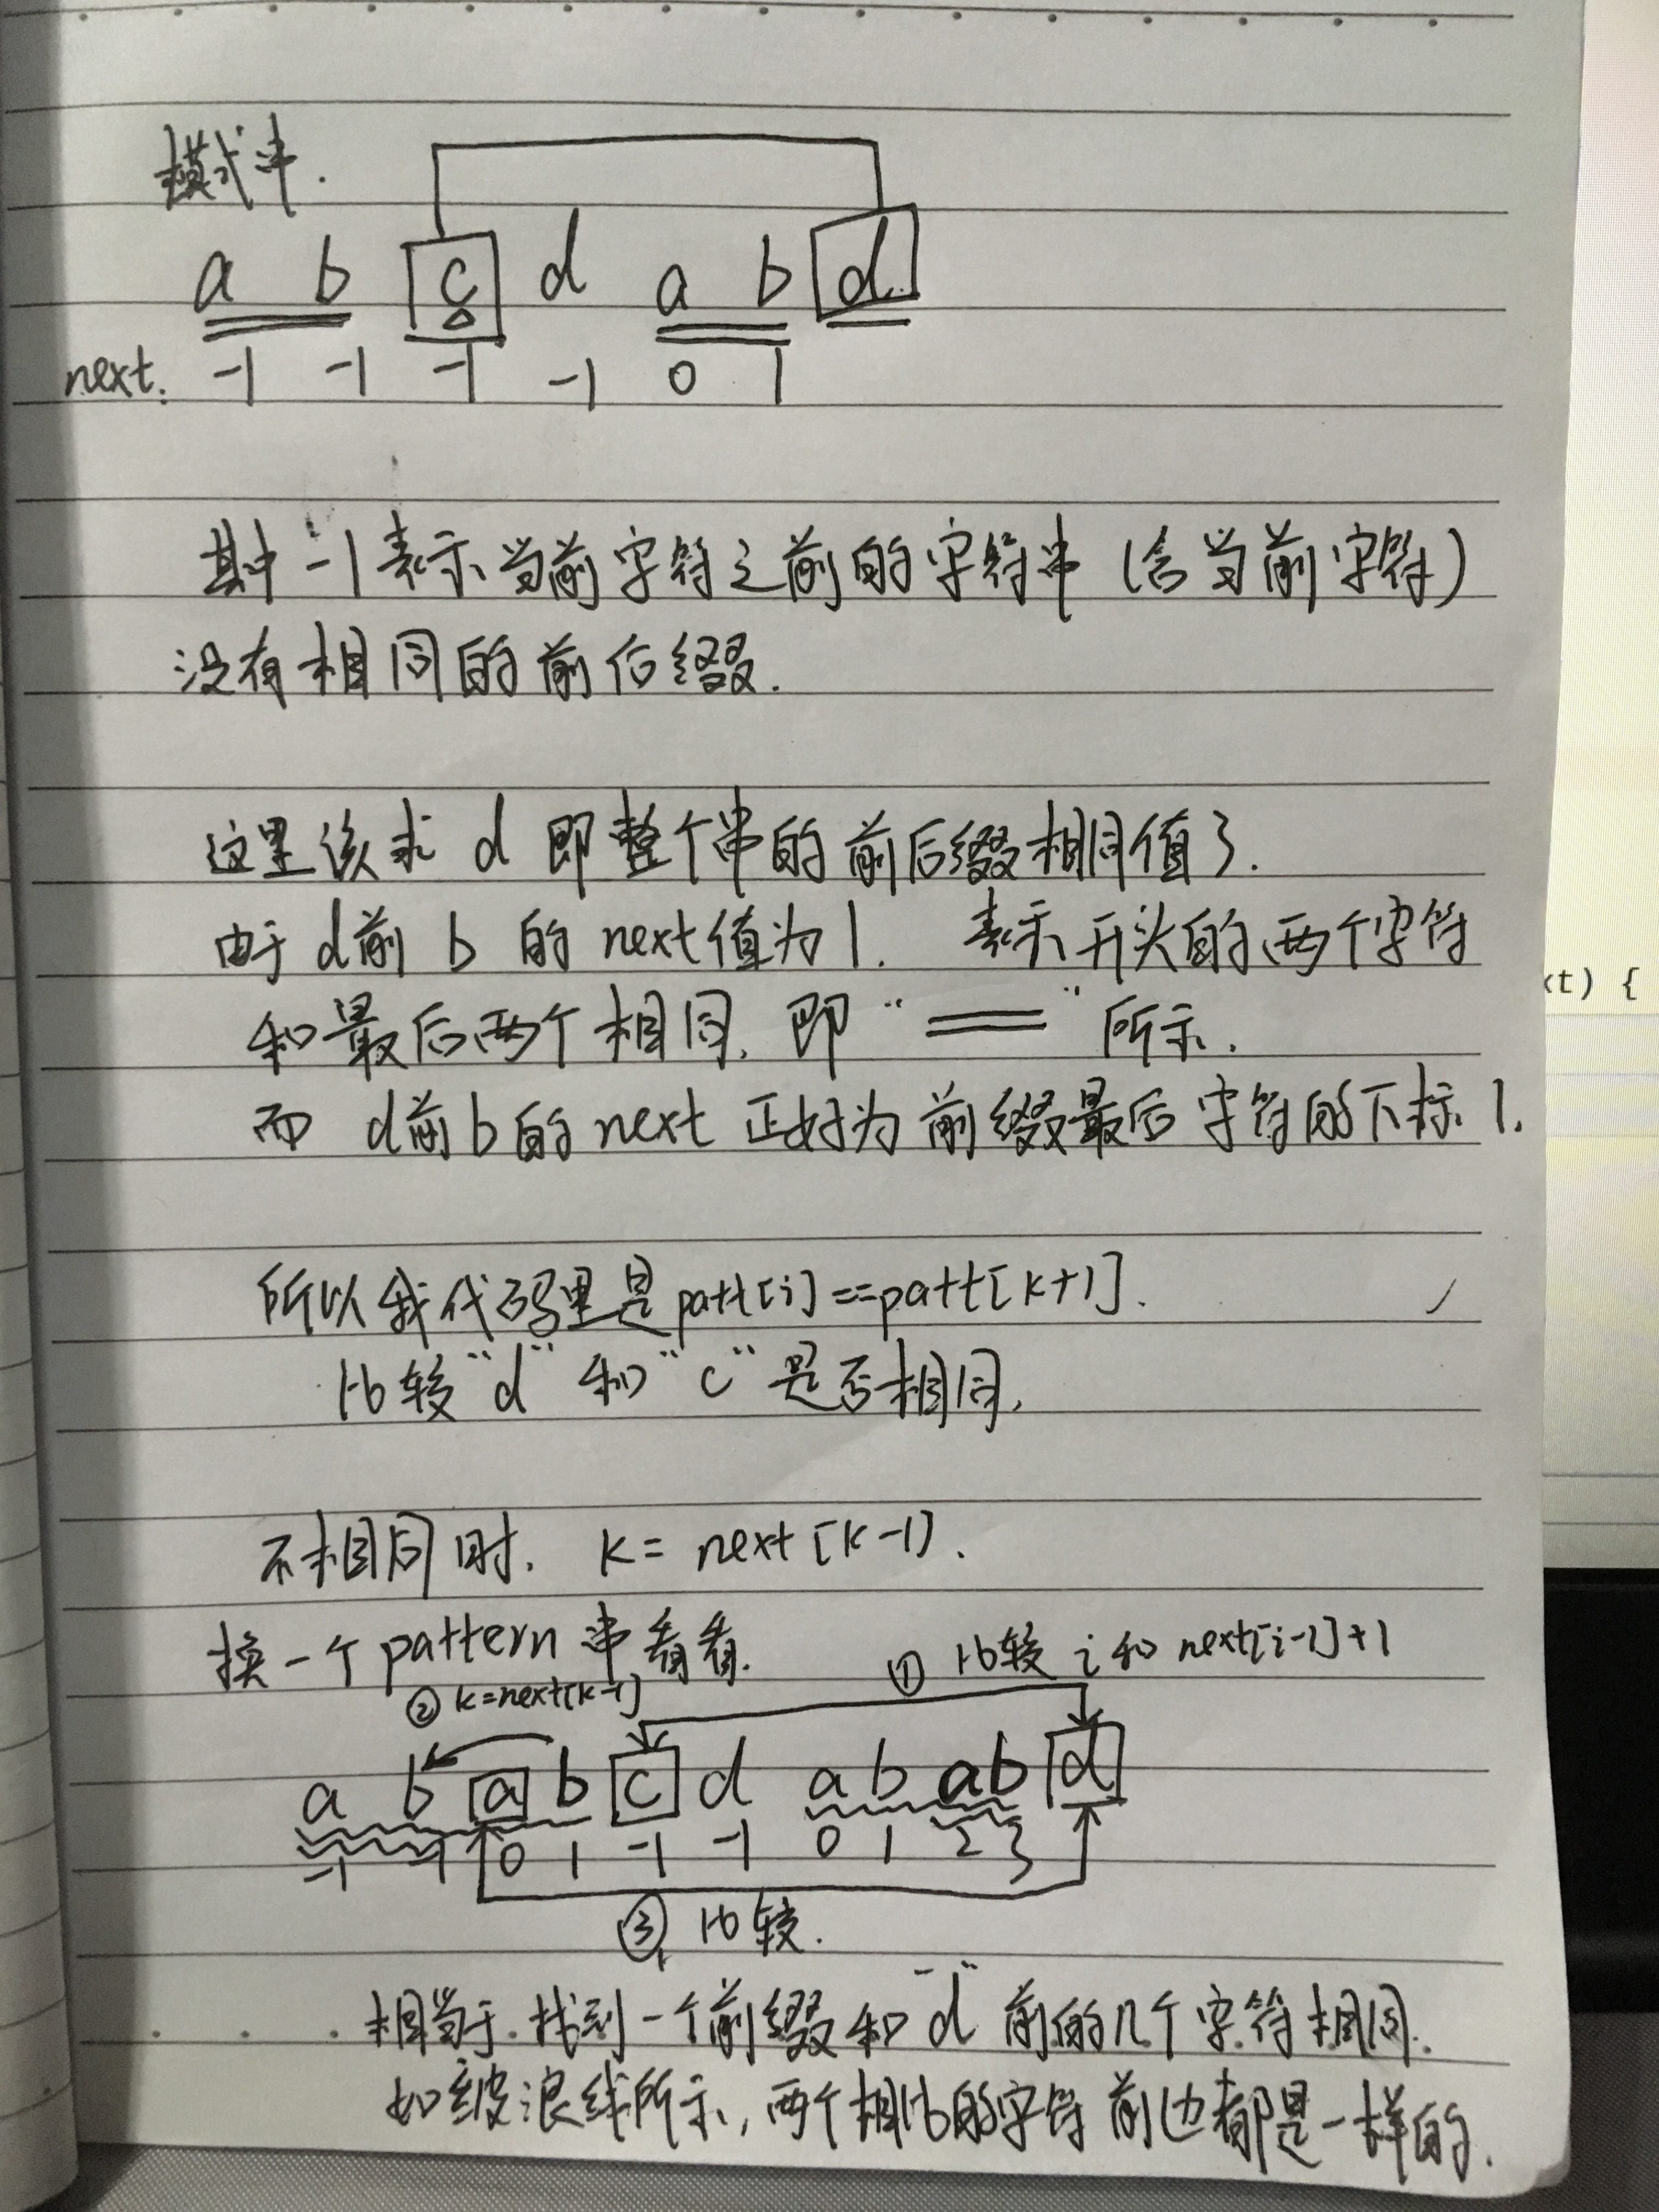 模式串.
a b c d a b d
next: -1 -1 -1 -1 0 1
其中 -1 表示当前字符之前的字符串 (含当前字符)
没有相同的前后缀.
这里该求 d 即整个串的前后缀相同值了.
由于 d前 b 的 next值为 1. 表示开头的两个字符
和最后两个相同, 即 " " 所示.
而 d前b的next 正好为前缀最后字符的下标 1.
xt) {
所以我代码里是 patt[i]==patt[k+1].
比较"d"和"c"是否相同,
不相同时. k = next[k-1].
换一个 pattern 串看看.
① 比较 i 和 next[i-1]+1
② k=next[k-1]
a b a b c d a b a b d
-1 -1 0 1 -1 -1 0 1 2 3
③ 比较.
相当于.找到一个前缀和"d"前的几个字符相同.
如波浪线所示, 两个相比的字符前边都是一样的.